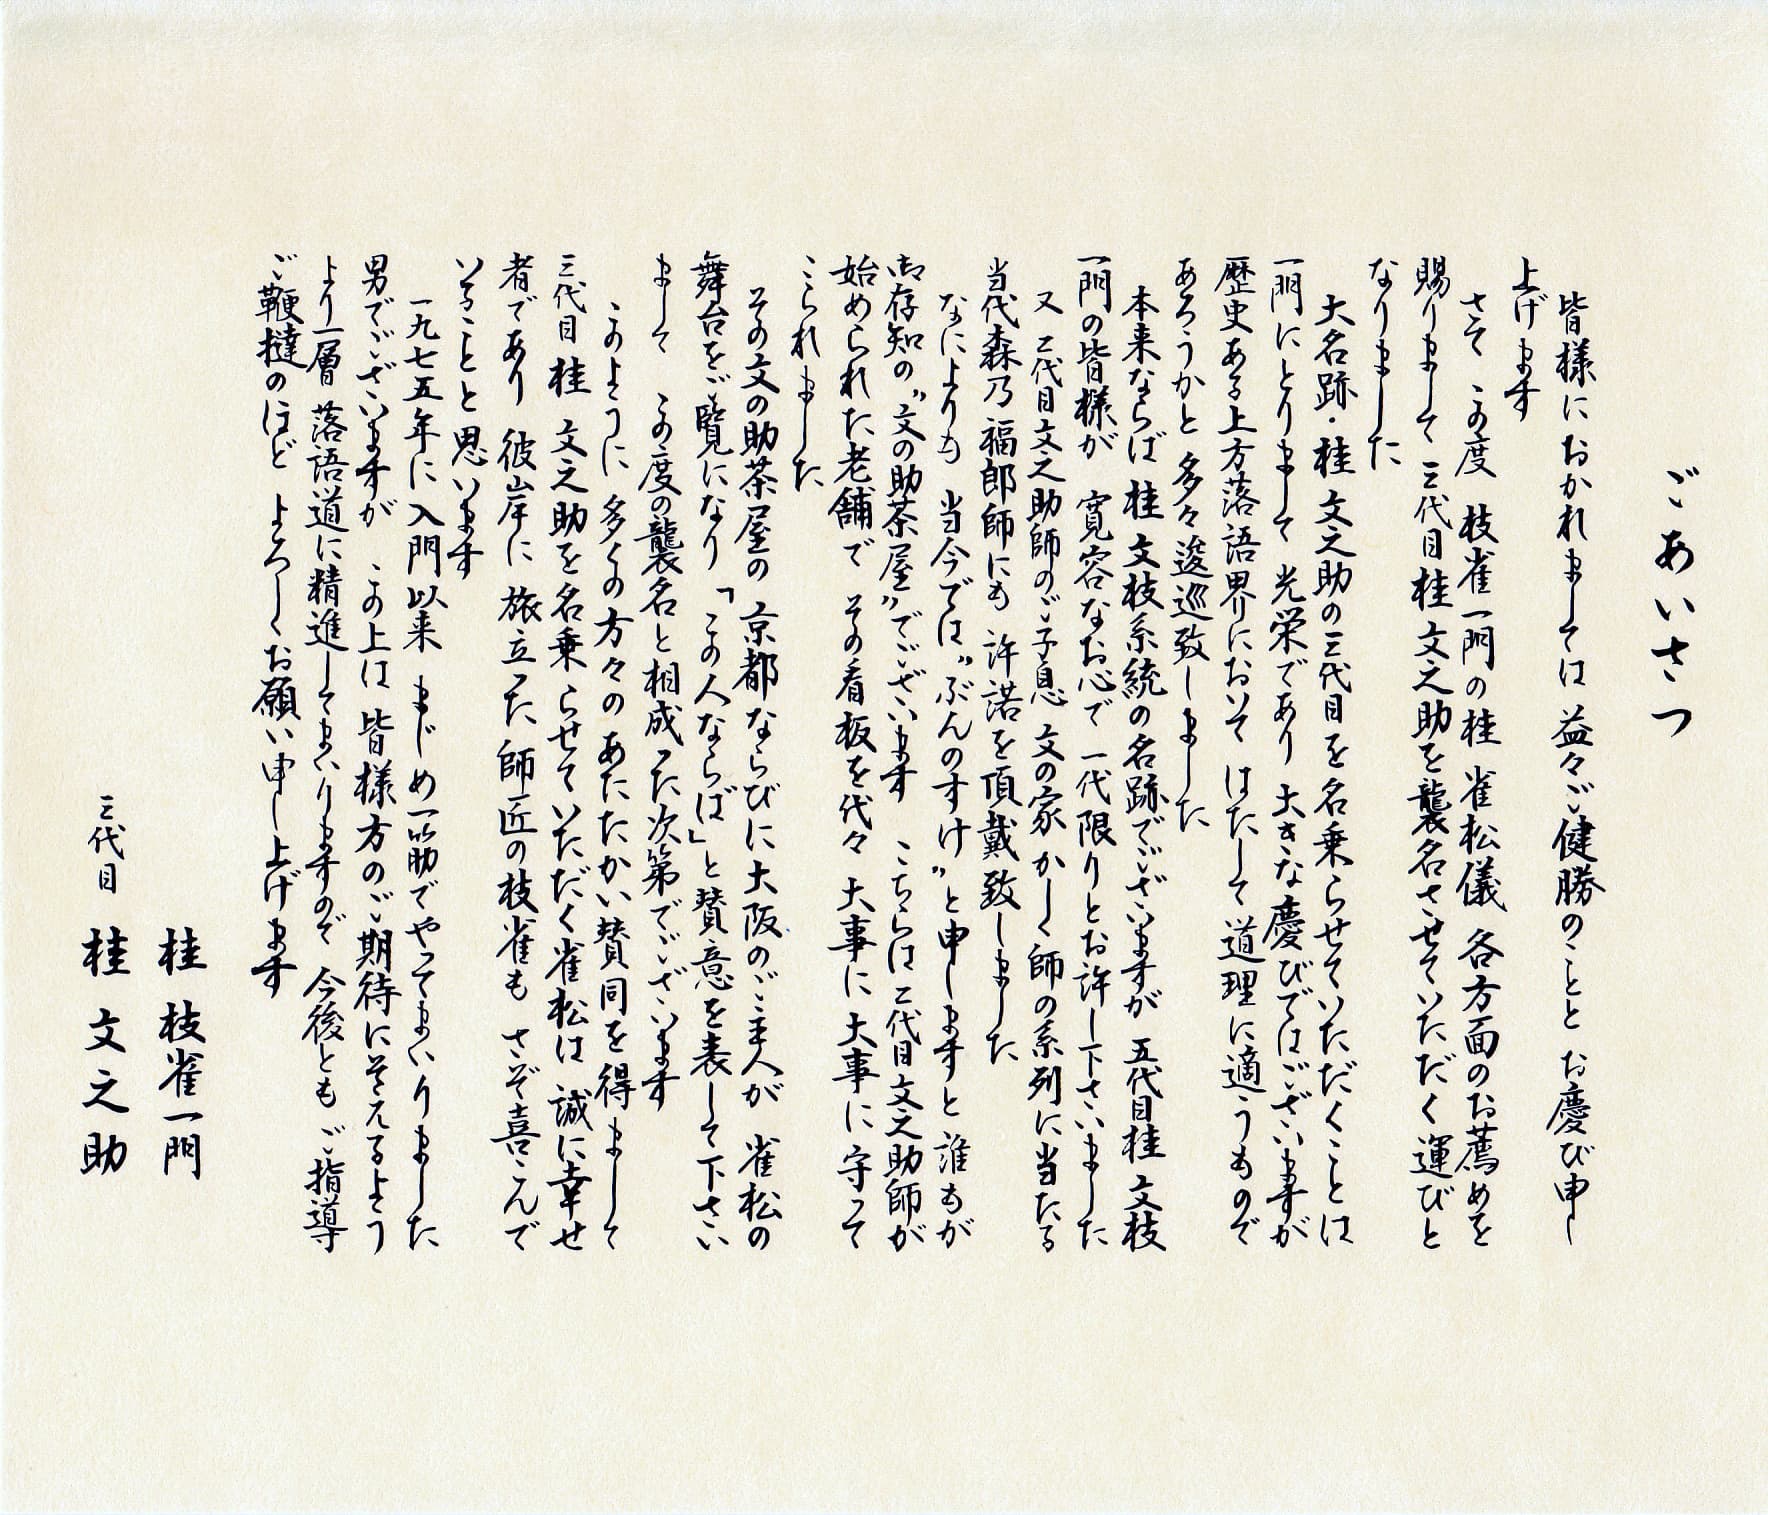 ごあいさつ
皆様におかれましては 益々ご健勝のことと お慶び申し
上げます
さて この度 枝雀一門の桂 雀松儀 各方面のお薦めを
賜りまして 三代目桂 文之助を襲名させていただく運びと
なりました
大名跡・桂 文之助の三代目を名乗らせていただくことは
一門にとりまして 光栄であり 大きな慶びではございますが
歴史ある上方落語界において はたして道理に適うもので
あろうかと 多々逡巡致しました
本来ならば 桂 文枝系統の名跡でございますが 五代目桂 文枝
一門の皆様が 寛容なお心で 一代限りとお許し下さいました
又 二代目文之助師のご子息 文の家 かしく師の系列に当たる
当代森乃 福郎師にも 許諾を頂戴致しました
なによりも 当今では〝ぶんのすけ〟と申しますと 誰もが
御存知の〝文の助茶屋〟でございます こちらは二代目文之助師が
始められた老舗で その看板を代々 大事に大事に守って
こられました
その文の助茶屋の 京都ならびに大阪のご主人が 雀松の
舞台をご覧になり「この人ならば」と賛意を表して下さい
まして この度の襲名と相成った次第でございます
このように 多くの方々の あたたかい賛同を得まして
三代目 桂 文之助を名乗らせていただく雀松は 誠に幸せ
者であり 彼岸に 旅立った師匠の枝雀も さぞ喜こんで
いることと思います
一九七五年に入門以来 まじめ一筋でやってまいりました
男でございますが この上は 皆様方のご期待にそえるよう
より一層 落語道に精進してまいりますので 今後とも ご指導
ご鞭撻のほど よろしくお願い申し上げます
桂 枝雀一門
三代目 桂 文之助